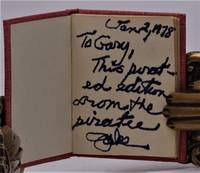 Jan 2, 1978
To Gary,
This pirat-
ed edition
from the
piratee